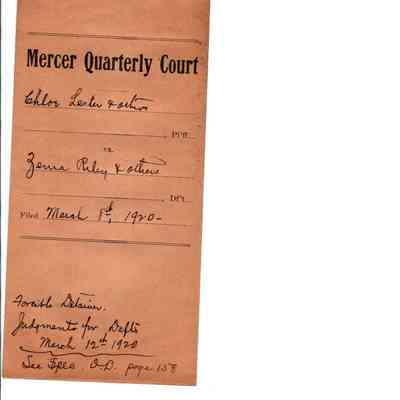 Mercer Quarterly Court
Chloe Lester & others
Plff.
vs.
Zema Riley & others
Dft.
Filed March 1st, 1920-
Forcible Detainer.
Judgments for Defts
March 12th 1920
See O.D. page 158